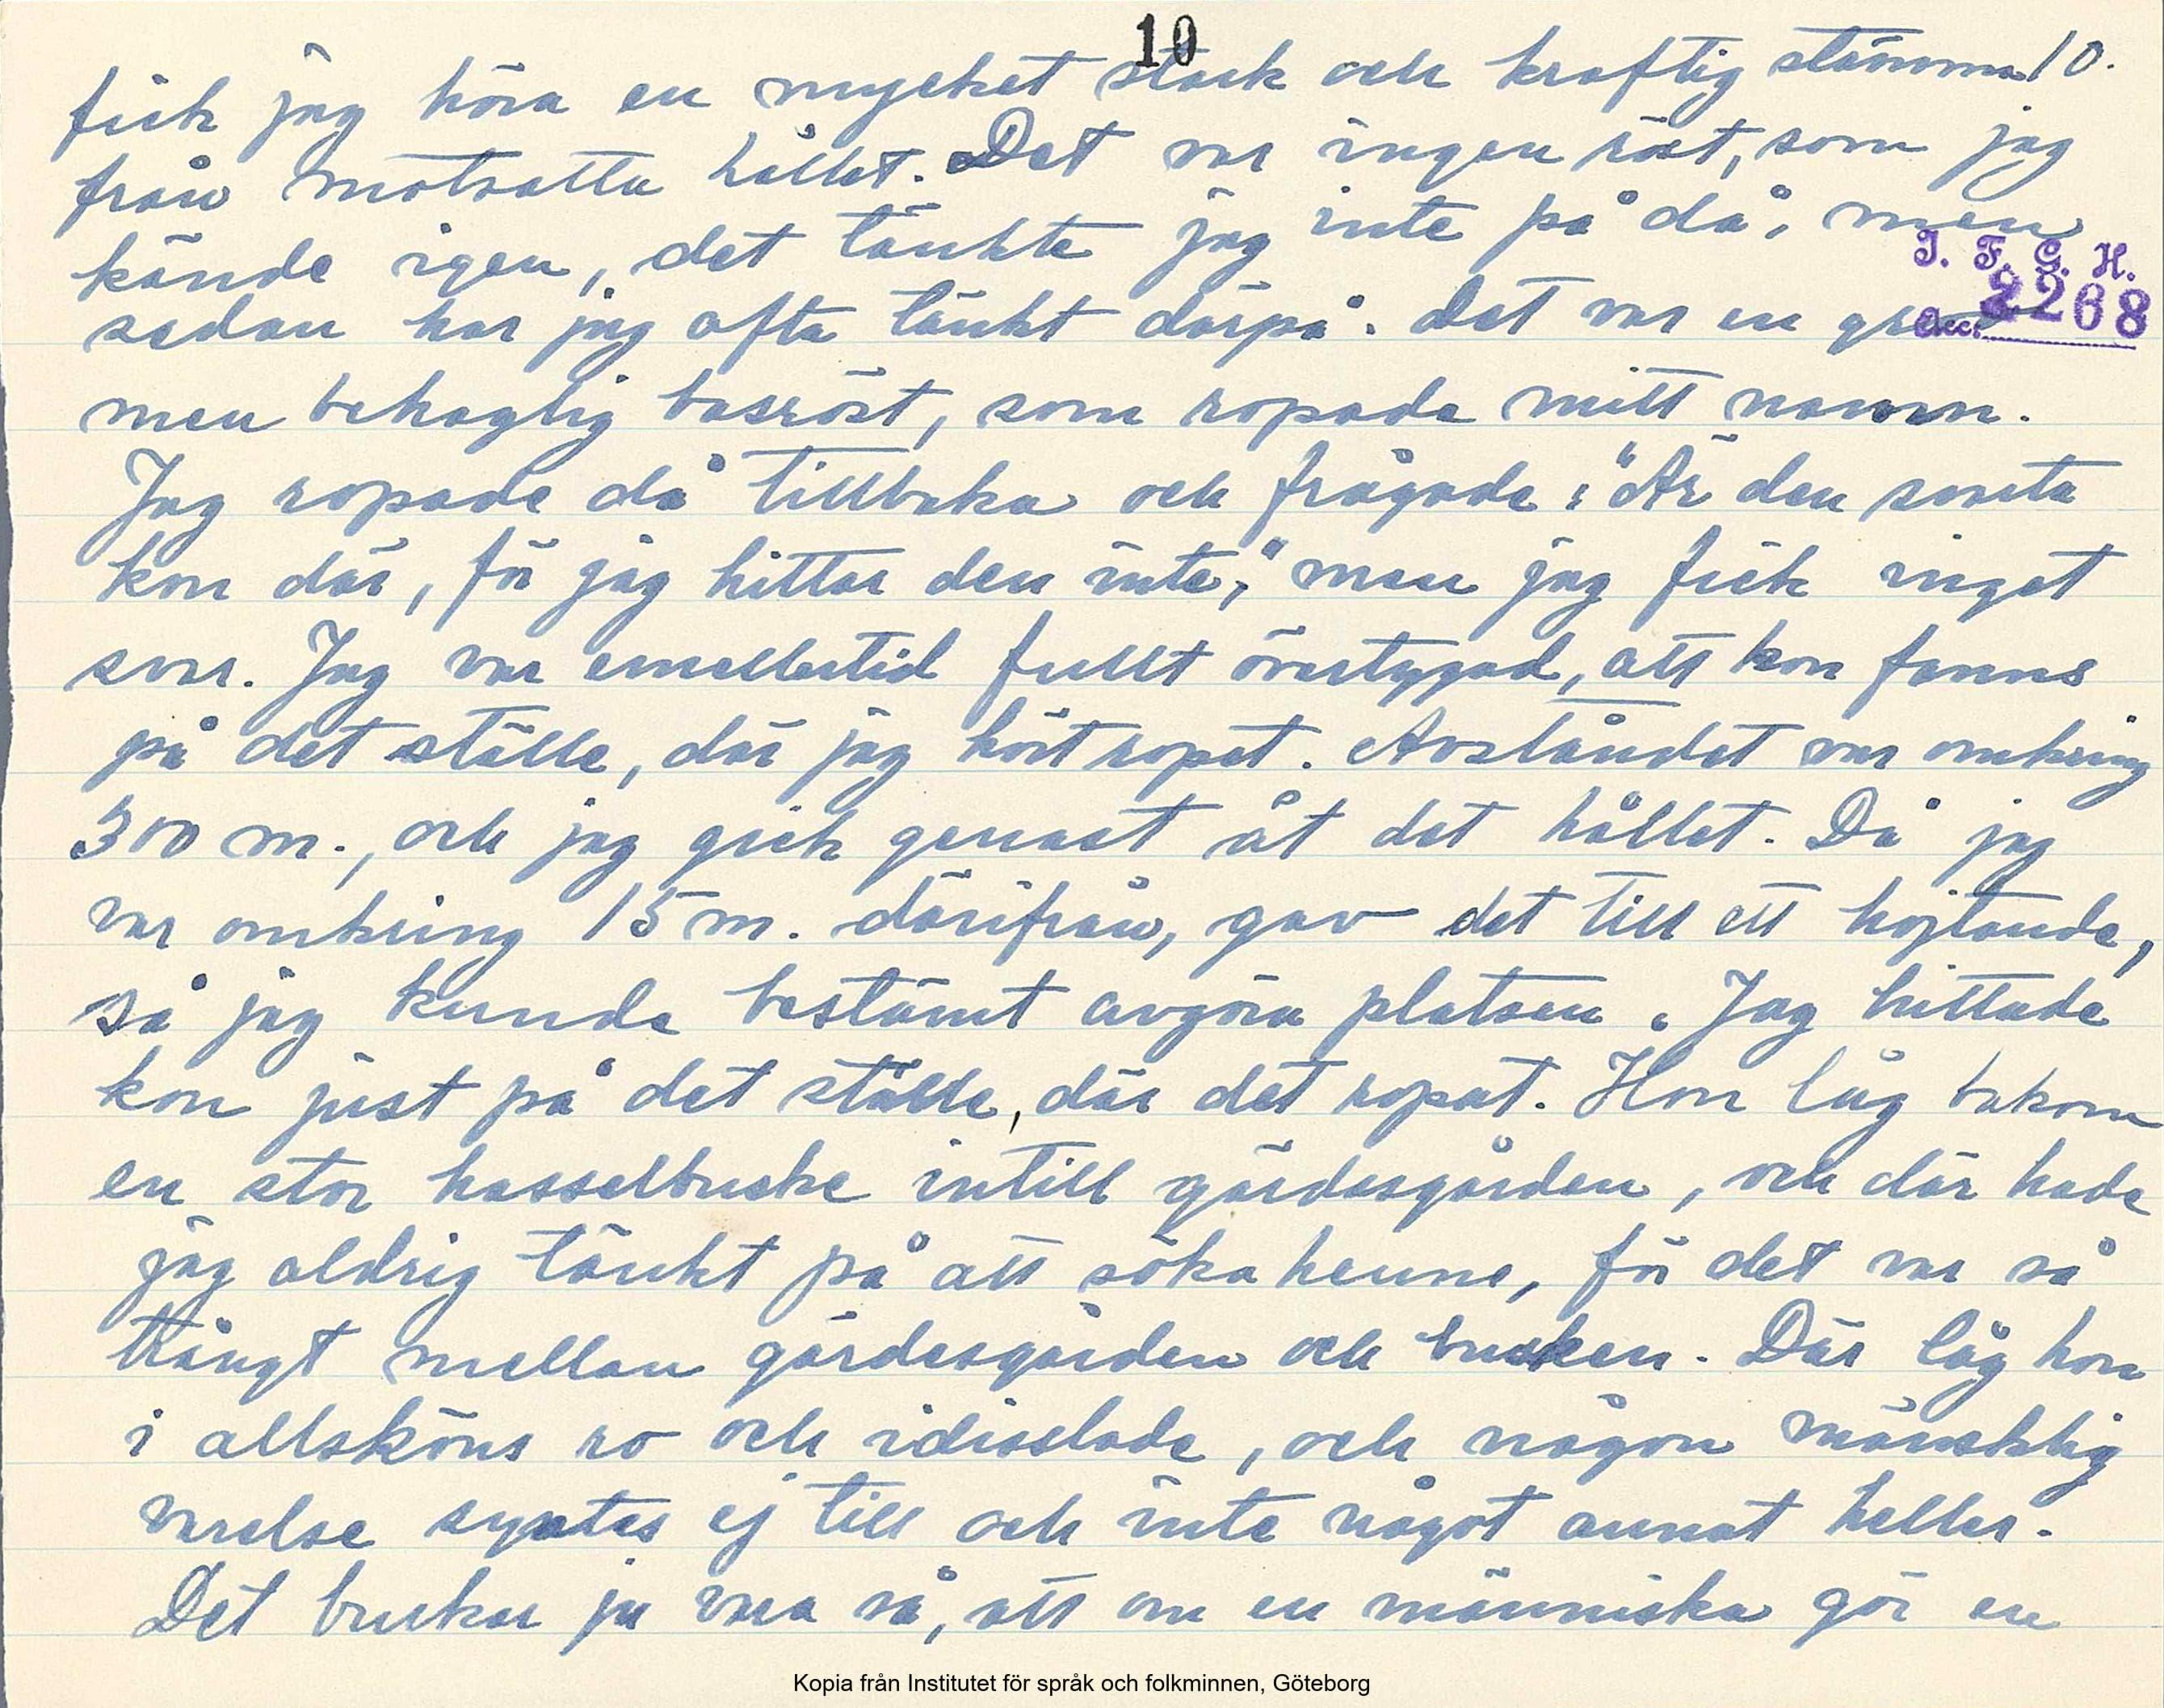 10
fick jag höra en mycket stark och kraftig stämma 10.
från motsatta hållet. Det var ingen röst, som jag
kände igen, det tänkte jag inte på då, men
I. F. G. H.
sedan har jag ofta tänkt därpå. Det var en grov
Acc. 2268
men behaglig basröst, som ropade mitt namn.
Jag ropade då tillbaka och frågade: "Är den svarta
kon där, för jag hittar den inte," men jag fick inget
svar. Jag var emellertid fullt övertygad, att kon fanns
på det ställe, där jag hört ropet. Avståndet var omkring
300 m., och jag gick genast åt det hållet. Då jag
var omkring 15 m. därifrån, gav det till ett hojtande,
så jag kunde bestämt avgöra platsen. Jag hittade
kon just på det ställe, där det ropat. Hon låg bakom
en stor hasselbuske intill gärdesgården, och där hade
jag aldrig tänkt på att söka henne, för det var så
trångt mellan gärdesgården och busken. Där låg hon
i allsköns ro och idisslade, och någon mänsklig
varelse syntes ej till och inte något annat heller.
Det brukar ju vara så, att om en människa gör en
Kopia från Institutet för språk och folkminnen, Göteborg